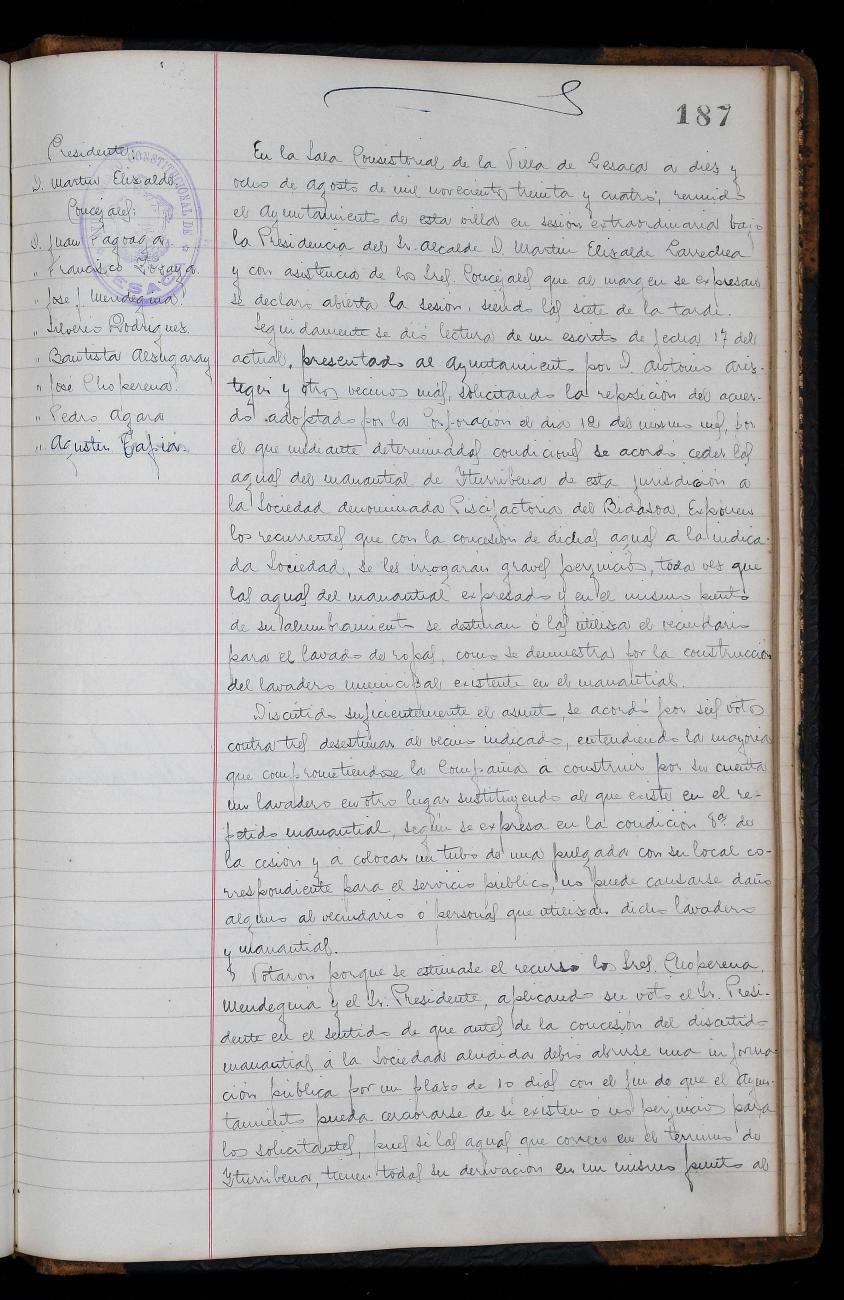 187
Presidente:
D. Martin Elizalde
Concejales:
D. Juan Tagoaga
" Francisco
" José J. Mendeguia
" Silverio Rodriguez
" Bautista Alzugaray
" José Choperena
" Pedro Agara
" Agustin Tapia
CONSTITUCIONAL DE
En la Sala Consistorial de la Villa de Lesaca a diez y
ocho de Agosto de mil novecientos treinta y cuatro; reunido
el Ayuntamiento de esta villa en sesión extraordinaria bajo
la Presidencia del Sr. Alcalde D. Martin Elizalde Larrechea
y con asistencia de los Sres. Concejales que al margen se expresan
se declaro abierta la sesión, siendo las siete de la tarde.
Seguidamente se dió lectura de un escrito de fecha 17 del
actual, presentado al Ayuntamiento por D. Antonio Aris-
tegui y otros vecinos más, solicitando la reposición del acuer-
do adoptado por la Corporación el dia 12 del mismo mes, por
el que mediante determinadas condiciones se acordó ceder las
aguas del manantial de Yturribena de esta jurisdicción a
la Sociedad denominada Piscifactoria del Bidasoa. Exponen
los recurrentes que con la concesión de dichas aguas a la indica-
da Sociedad, se les irrogarán graves perjuicios, toda vez que
las aguas del manantial expresado y en el mismo punto
de su alumbramiento se destinan ó las utiliza el vecindario
para el lavado de ropas, como se demuestra por la construcción
del lavadero municipal existente en el manantial.
Discutido suficientemente el asunto, se acordó por seis votos
contra tres desestimar al vecino indicado, entendiendo la mayoria
que comprometiendose la Compañia á construir por su cuenta
un lavadero en otro lugar sustituyendo al que existe en el re-
petido manantial, según se expresa en la condición 8ª de
la cesión y á colocar un tubo de una pulgada con su local co-
rrespondiente para el servicio público, no puede causarse daño
alguno al vecindario ó personas que utilizan dicho lavadero
y manantial.
Votaron porque se estimase el recurso los Sres. Choperena,
Mendeguia y el Sr. Presidente, aplicando su voto el Sr. Presi-
dente en el sentido de que antes de la concesión del discutido
manantial á la Sociedad aludida debió abrirse una informa-
ción pública por un plazo de 10 dias con el fin de que el Ayun-
tamiento pueda cerciorarse de si existen ó no perjuicios para
los solicitantes, pues si las aguas que corren en el termino de
Yturribena, tienen todas su derivación en un mismo punto al